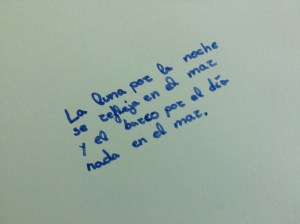 La luna por la noche
se refleja en el mar
y el barco por el día
nada en el mar.